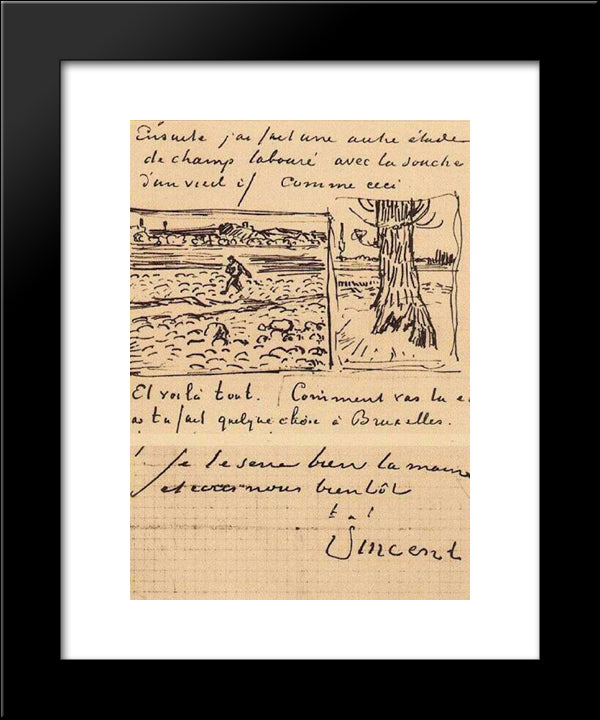 Ensuite j'ai fait une autre étude
de champ labouré avec la souche
d'un vieil if comme ceci
Et voilà tout. Comment vas tu e
as tu fait quelque chose à Bruxelles.
Je te serre bien la main
et nous bientôt
t. à t
Vincent